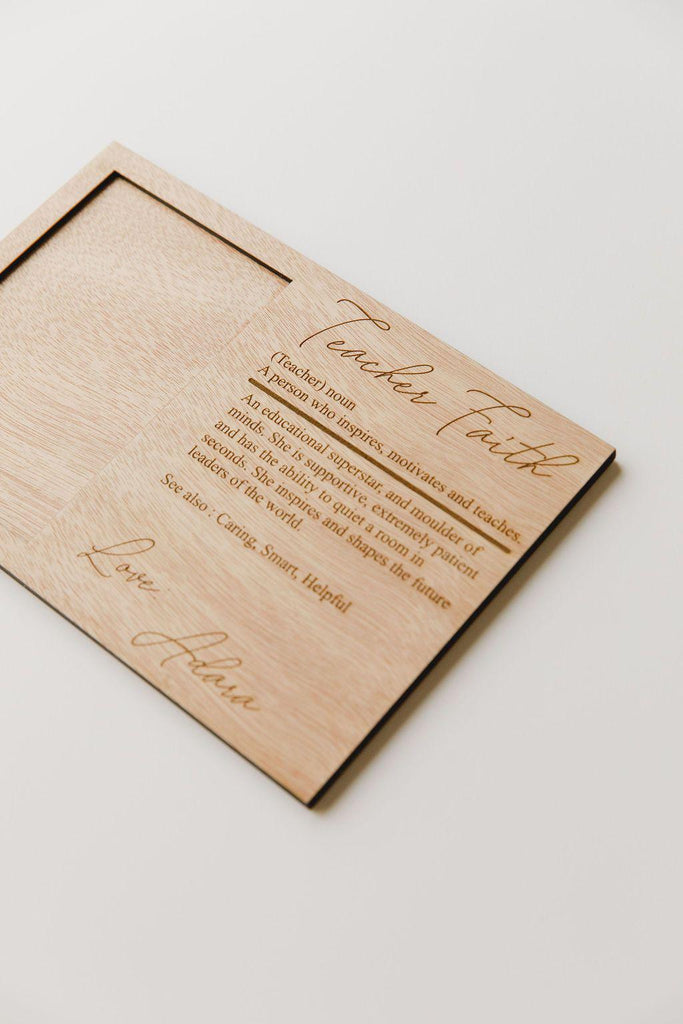 Teacher Faith
(Teacher) noun
A person who inspires, motivates and teaches.
An educational superstar, and moulder of
minds. She is supportive, extremely patient
and has the ability to quiet a room in
seconds. She inspires and shapes the future
leaders of the world.
See also : Caring, Smart, Helpful
Love.
Adara